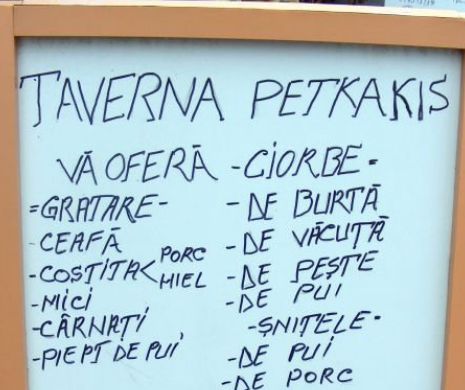 TAVERNA PETKAKIS
VĂ OFERĂ
=GRATARE-
-CEAFĂ
-COSTITA< PORC
HIEL
-MICI
-CÂRNAȚI
-PIEPT DE PUI
-CIORBE-
-DE BURTĂ
-DE VĂCUȚĂ
-DE PEȘTE
-DE PUI
-ȘNIȚELE-
-DE PUI
-DE PORC